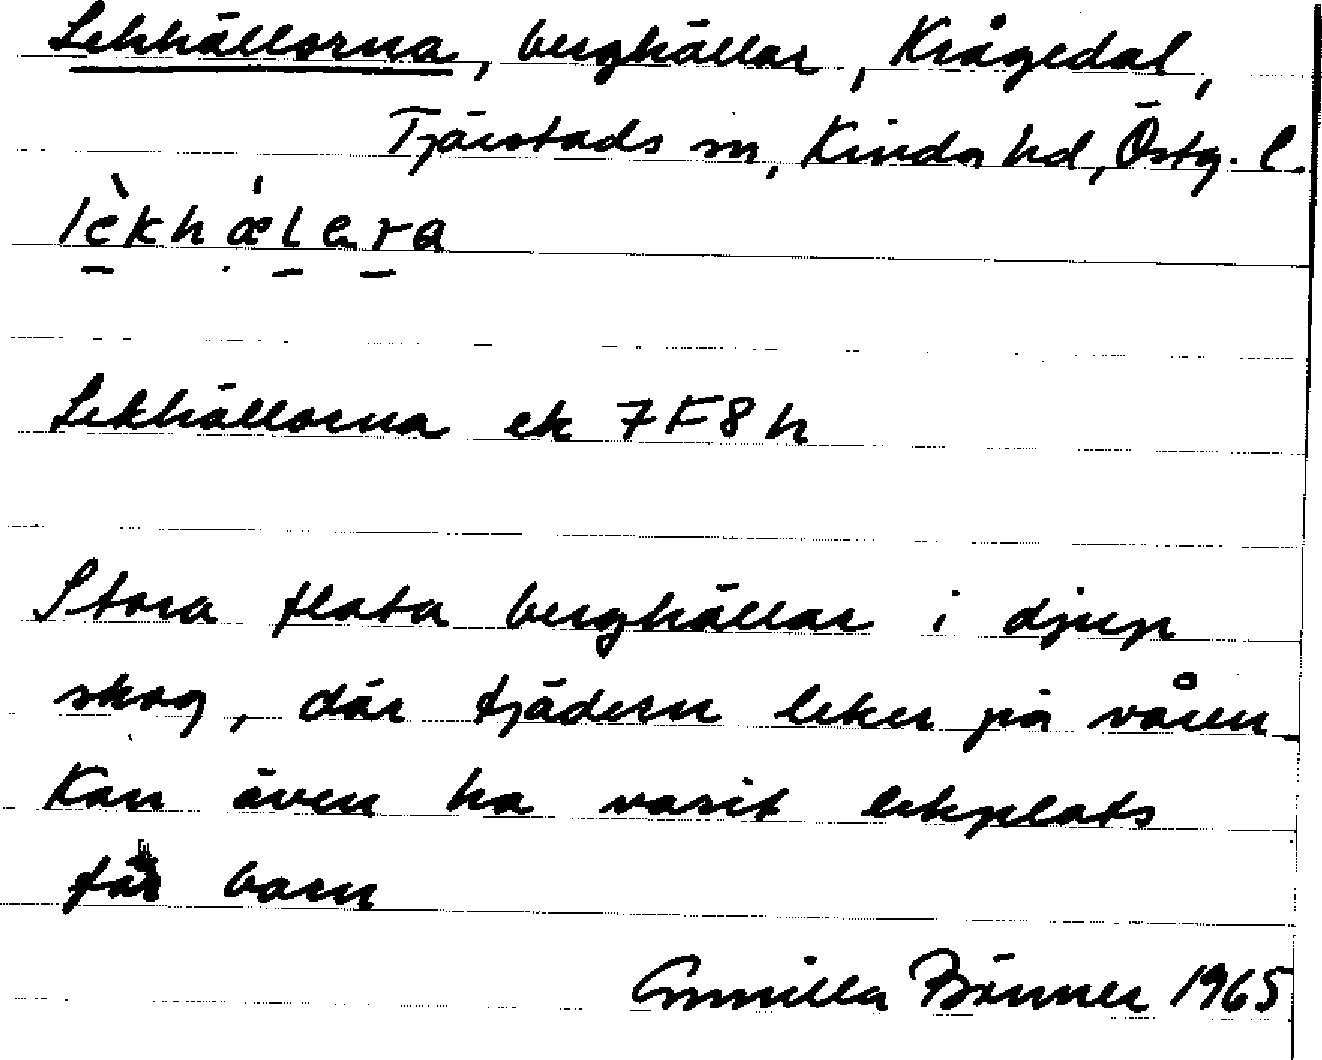 Lekhällorna, berghällar, Krågedal,
Tjärstads sn, Kinda hd, Östg. l.
lèkhǽlera
Lekhällorna ek 7F8h
Stora flata berghällar i djup
skog, där tjädern leker på våren.
Kan även ha varit lekplats
för barn
Gunilla 1965